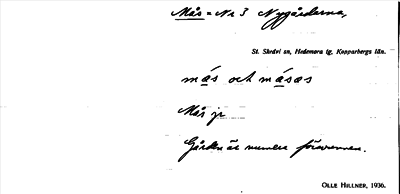 Mås = Nr 3 Nygårdarna,
St. Skedvi sn, Hedemora tg, Kopparbergs län.
mås och måsas
Mås jr
Gården är numera försvunnen.
OLLE HILLNER, 1936.